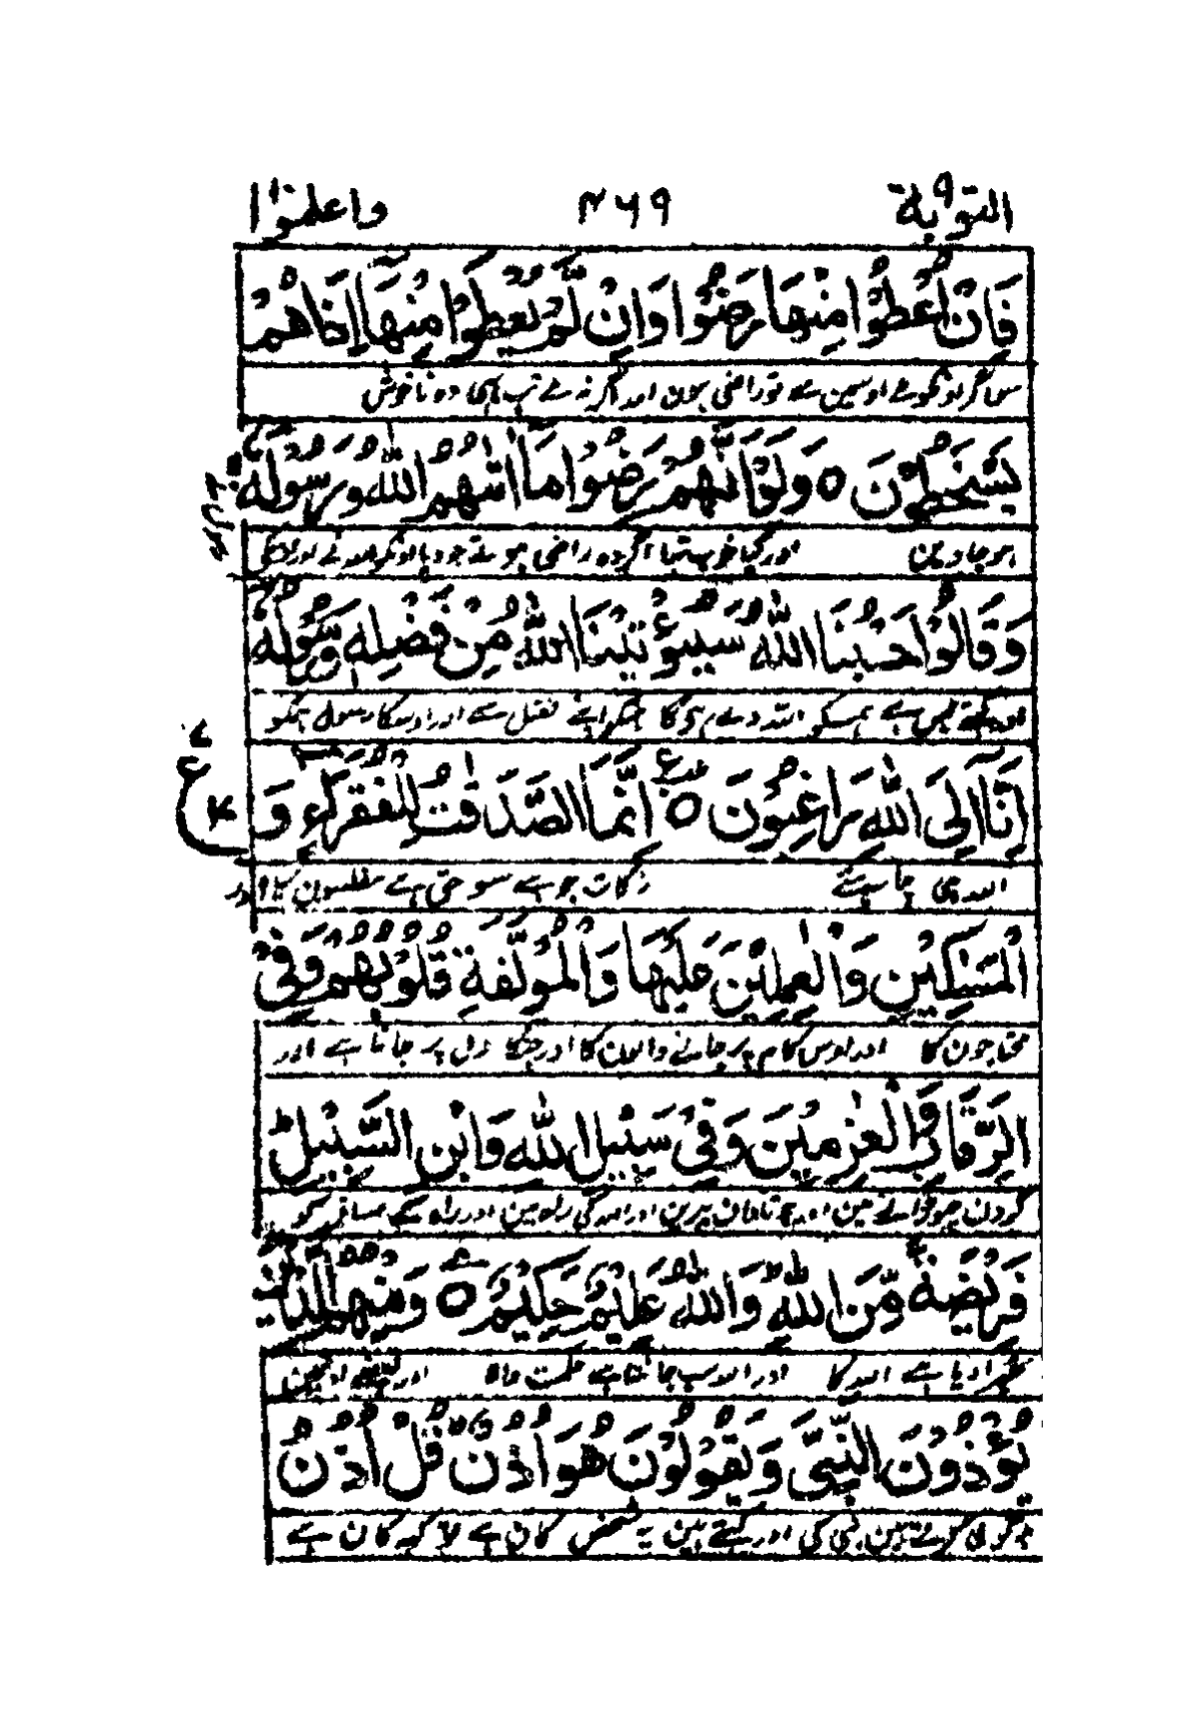 التوبة ٩ ٢٦٩ واعلموا
فَاِنْ اُعْطُوْا مِنْهَا رَضُوْا وَاِنْ لَّمْ يُعْطَوْا مِنْهَآ اِذَا هُمْ
سو اگر اونکو ملے اوسمین سے تو راضی ہون اور اگر نہ ملے تب ہی وہ ناخوش
يَسْخَطُوْنَ ○ وَلَوْ اَنَّهُمْ رَضُوْا مَآ اٰتٰىهُمُ اللّٰهُ وَرَسُوْلُهٗ
ہو جاوین اور کیا خوب تھا اگر وہ راضی ہوتے جو دیا اونکو اللہ نے اور
وَقَالُوْا حَسْبُنَا اللّٰهُ سَيُؤْتِيْنَا اللّٰهُ مِنْ فَضْلِهٖ وَرَسُوْلُهٗٓ
بس ہے ہمکو اللہ دے رہیگا ہمکو اپنے فضل سے اور اوسکا رسول ہمکو
اِنَّآ اِلَى اللّٰهِ رَاغِبُوْنَ ○ اِنَّمَا الصَّدَقٰتُ لِلْفُقَرَآءِ وَ
ع ٧
اللہ ہی چاہئے زکات جو ہے سو حق ہے مفلسون کا اور
الْمَسٰكِيْنِ وَالْعٰمِلِيْنَ عَلَيْهَا وَالْمُؤَلَّفَةِ قُلُوْبُهُمْ وَفِى
محتاجون کا اور اوس کام پر جانے والون کا اور جنکا دل پر جانا ہے اور
الرِّقَابِ وَالْغٰرِمِيْنَ وَفِىْ سَبِيْلِ اللّٰهِ وَابْنِ السَّبِيْلِ ط
گردن چھوڑانے مین اور جو تاوان بھرین اور اللہ کی راہ مین اور راہ کے مسافر کو
فَرِيْضَةً مِّنَ اللّٰهِ وَاللّٰهُ عَلِيْمٌ حَكِيْمٌ ○ وَمِنْهُمُ الَّذِيْنَ
ٹھہرا دیا ہے اللہ کا اور اللہ سب جانتا ہے حکمت والا اور
يُؤْذُوْنَ النَّبِىَّ وَيَقُوْلُوْنَ هُوَ اُذُنٌ قُلْ اُذُنُ
بدگوئی کرتے ہین نبی کی اور کہتے ہین یہ شخص کان ہے تو کہہ کان ہے